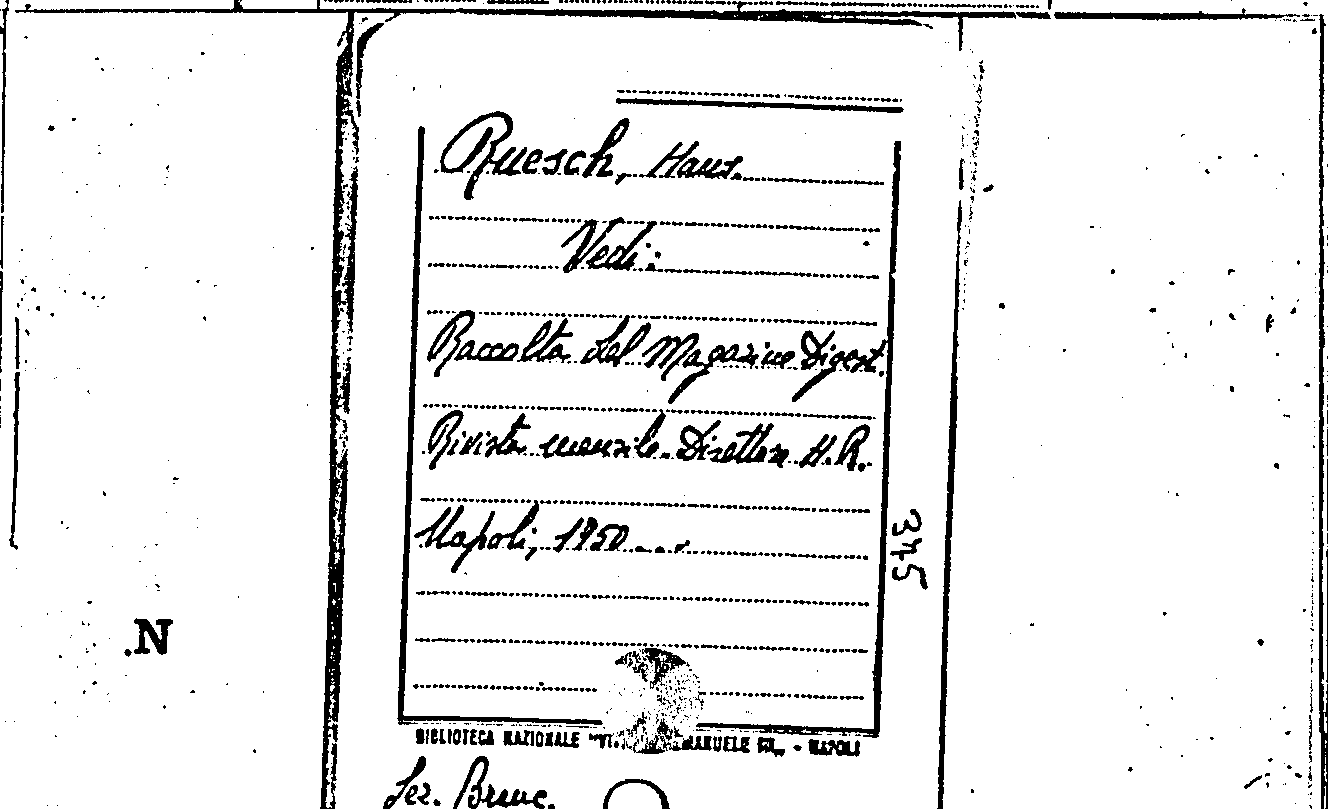 Ruesch, Hans.
Vedi:
Raccolta del Magazine Digest.
Rivista mensile. Direttore H.R.
Napoli, 1950...
345
.N
BIBLIOTECA NAZIONALE "VITT. EMANUELE III„ - NAPOLI
Sez. Brunc.